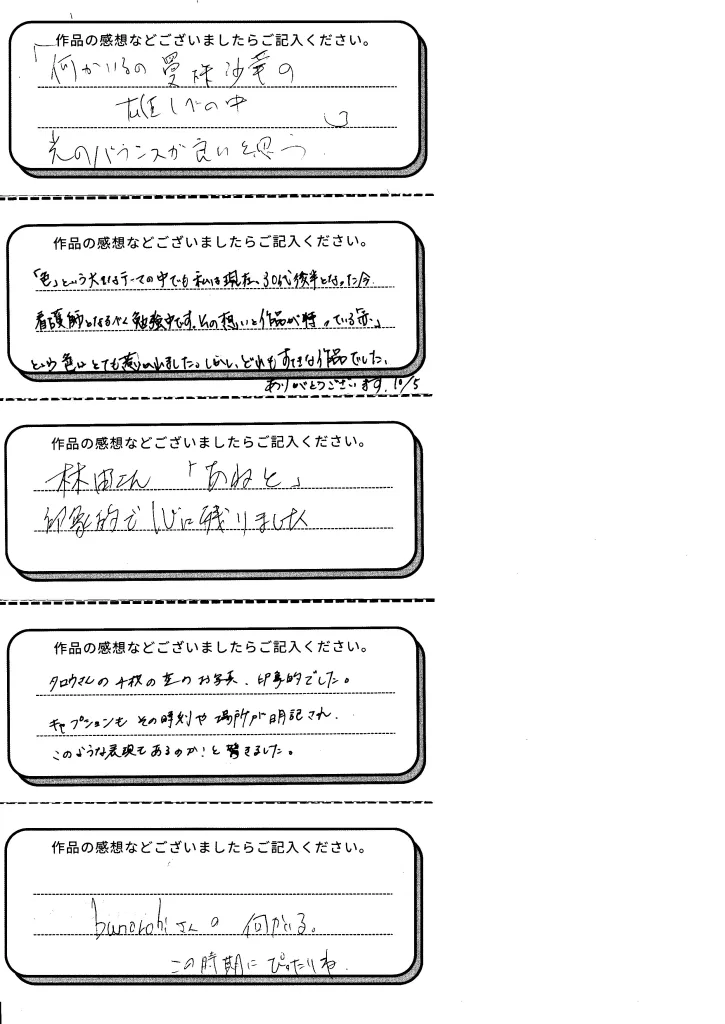 作品の感想などございましたらご記入ください。
「何かいるの曼珠沙華の
雄しべの中」
光のバランスが良いと思う
作品の感想などございましたらご記入ください。
「色」という大きなテーマの中でも私は現在、30代後半となった今
看護師となるべく勉強中です。その想いと作品が持っている「赤」
という色にとても惹かれました。しかし、どれもすてきな作品でした。
ありがとうございます。10/5
作品の感想などございましたらご記入ください。
林田さん「あねと」
印象的で心に残りました
作品の感想などございましたらご記入ください。
タロウさんの4枚の空のお写真、印象的でした。
キャプションもその時刻や場所が明記され、
このような表現もあるのか!と驚きました。
作品の感想などございましたらご記入ください。
bunorobiさんの 何かいる。
この時期にぴったりね